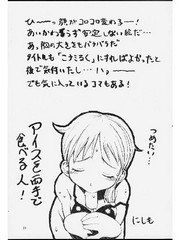 ひ〜〜っ 顔がコロコロ変わる〜！
あいかわらず安定しない絵だ…
あ、胸の大きさもバラバラだ
タイトルも「こさころく」にすればよかったと
後で気付いたし…
でも気に入っているコマもある！
つめたい…
アイスを両手で
食べる人！
にしも